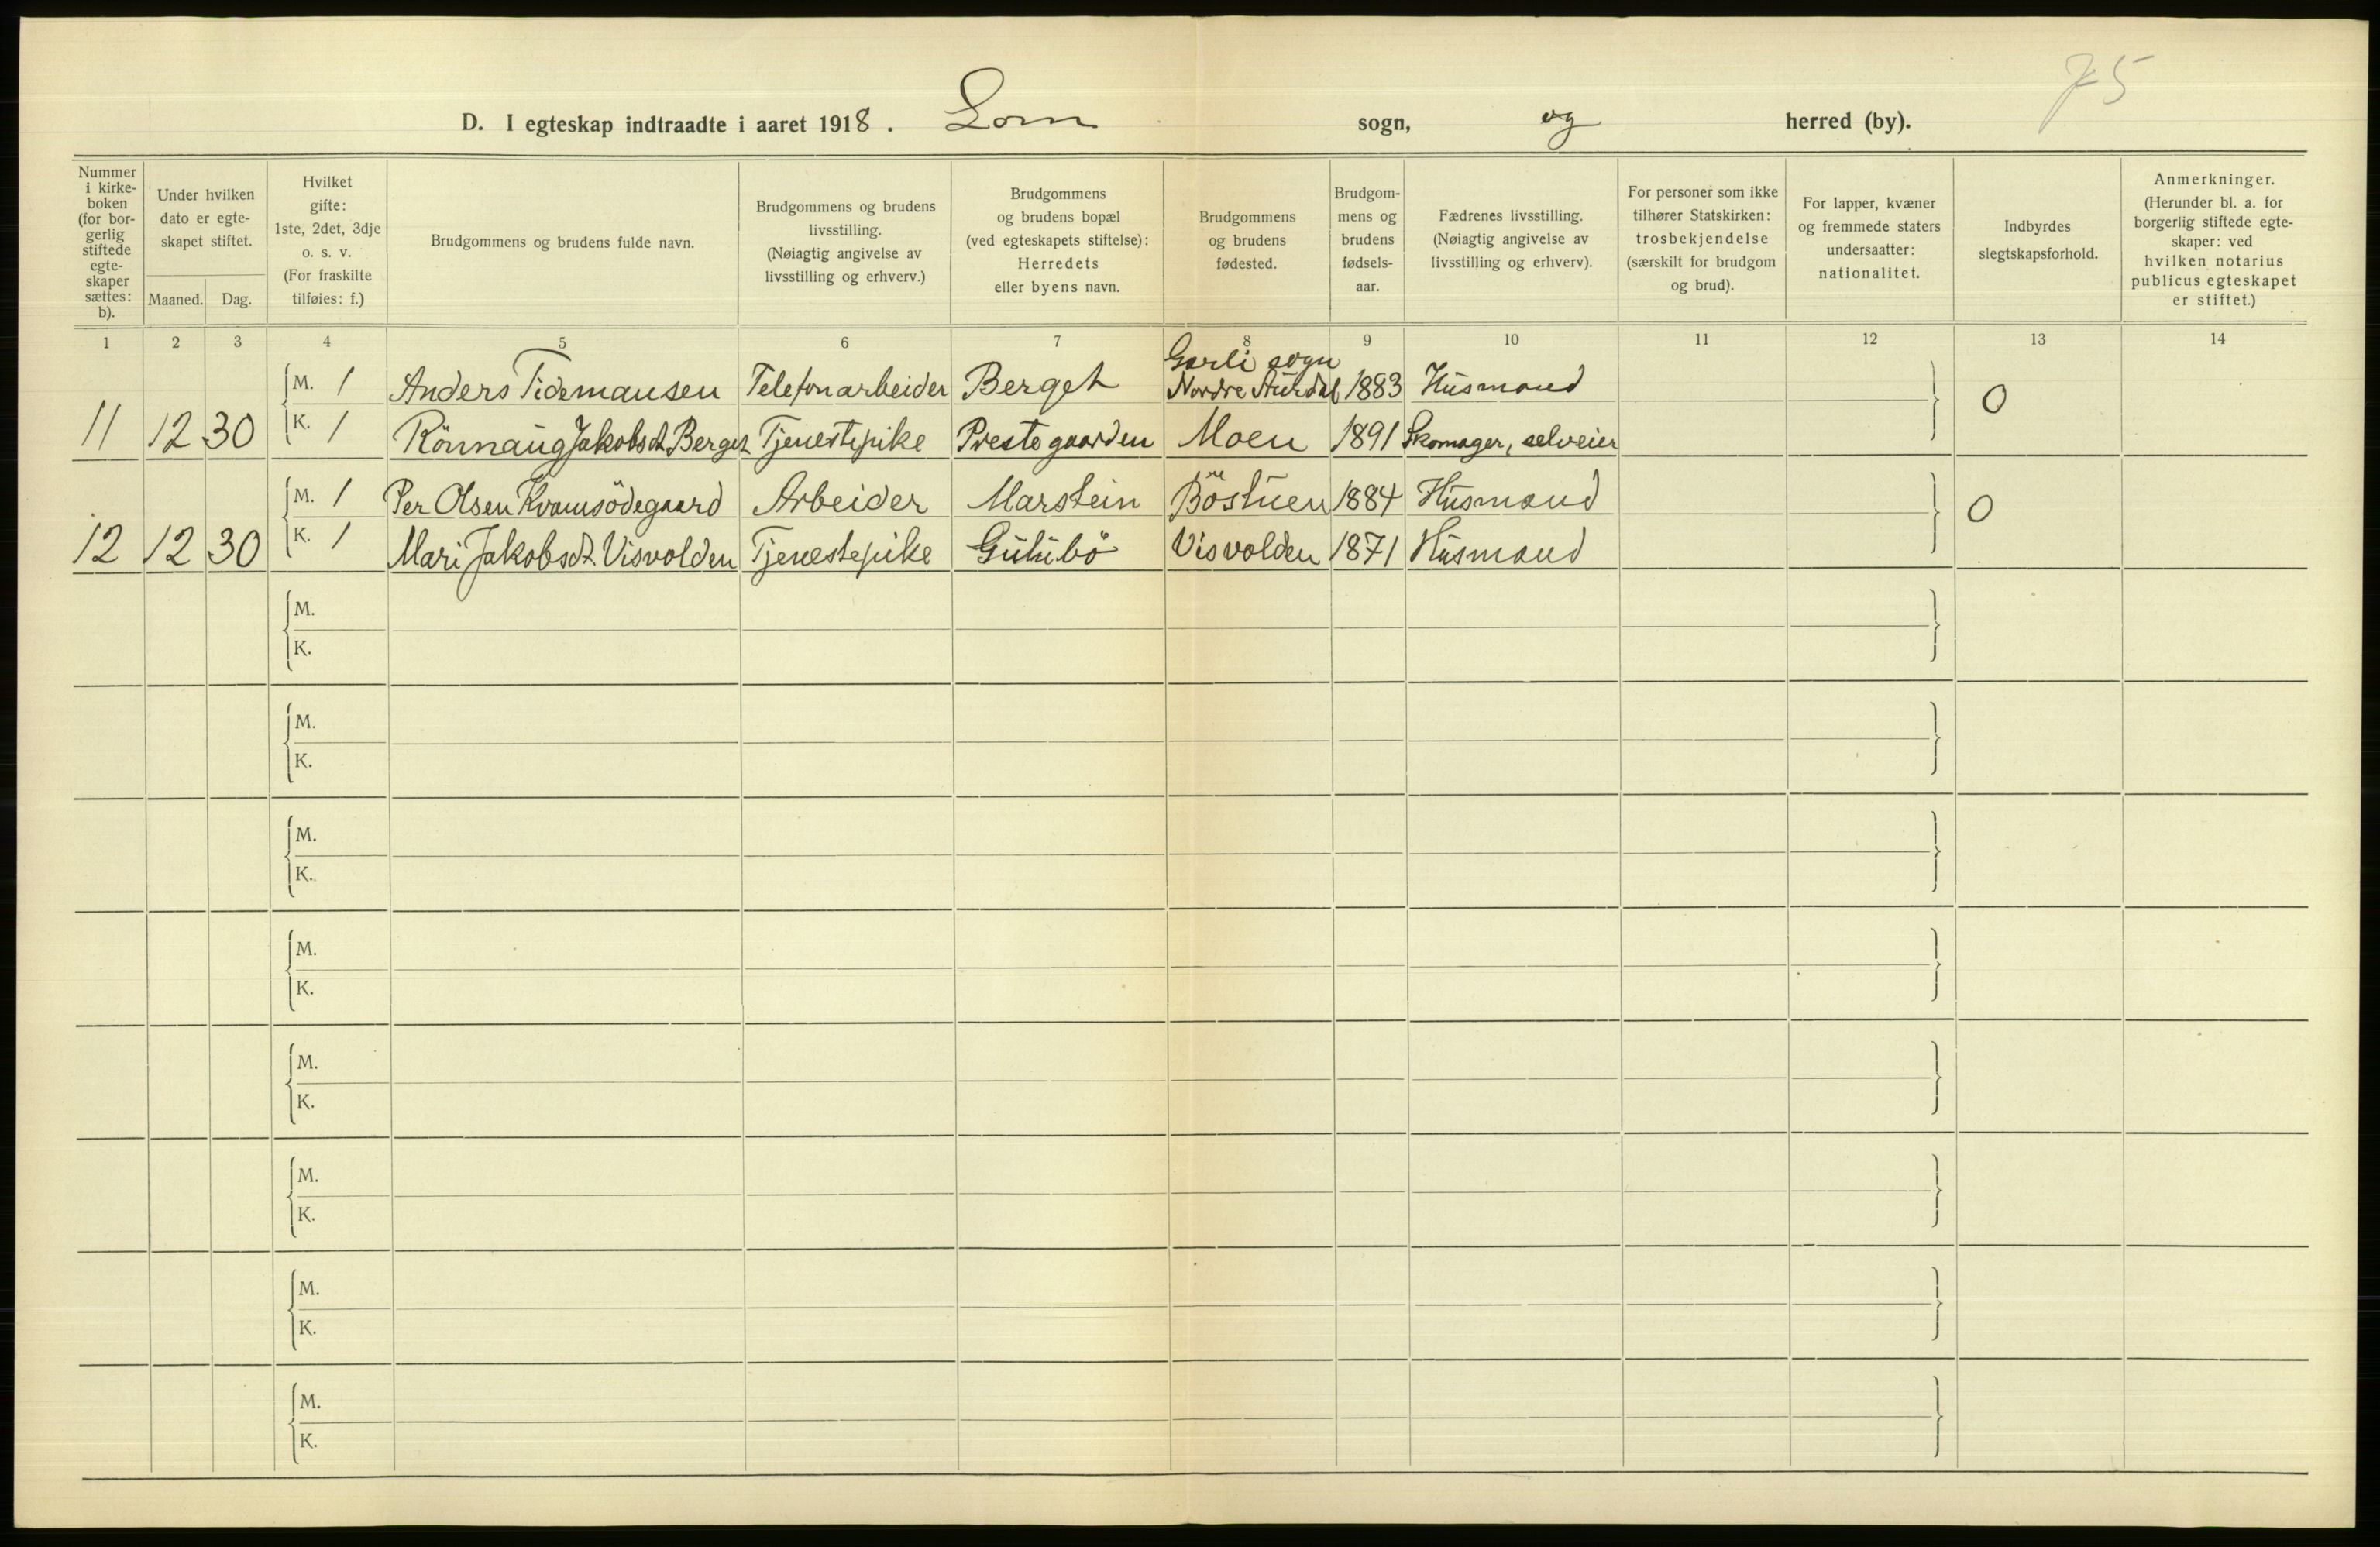 75
D. I egteskap indtraadte i aaret 1918. Lom sogn, og herred (by).
Nummer i kirke- boken (for bor- gerlig stiftede egte- skaper sættes: b).
Under hvilken dato er egte- skapet stiftet.
Maaned. Dag.
Hvilket gifte: 1ste, 2det, 3dje o. s. v. (For fraskilte tilføies: f.)
Brudgommens og brudens fulde navn.
Brudgommens og brudens livsstilling. (Nøiagtig angivelse av livsstilling og erhverv.)
Brudgommens og brudens bopæl (ved egteskapets stiftelse): Herredets eller byens navn.
Brudgommens og brudens fødested.
Brudgom- mens og brudens fødsels- aar.
Fædrenes livsstilling. (Nøiagtig angivelse av livsstilling og erhverv).
For personer som ikke tilhører Statskirken: trosbekjendelse (særskilt for brudgom og brud).
For lapper, kvæner og fremmede staters undersaatter: nationalitet.
Indbyrdes slegtskapsforhold.
Anmerkninger. (Herunder bl. a. for borgerlig stiftede egte- skaper: ved hvilken notarius publicus egteskapet er stiftet.)
1 2 3 4 5 6 7 8 9 10 11 12 13 14
M. 1 Anders Tidemansen Telefonarbeider Berget Garli sogn Nordre Aurdal 1883 Husmand 0
11 12 30 K. 1 Rönnaug Jakobsdt. Berget Tjenestepike Prestegaarden Moen 1891 Skomager, selveier
M. 1 Per Olsen Kvamsödegaard Arbeider Marstein Böstuen 1884 Husmand 0
12 12 30 K. 1 Mari Jakobsdt. Visvolden Tjenestepike Visvolden 1871 Husmand
M.
K.
M.
K.
M.
K.
M.
K.
M.
K.
M.
K.
M.
K.
M.
K.